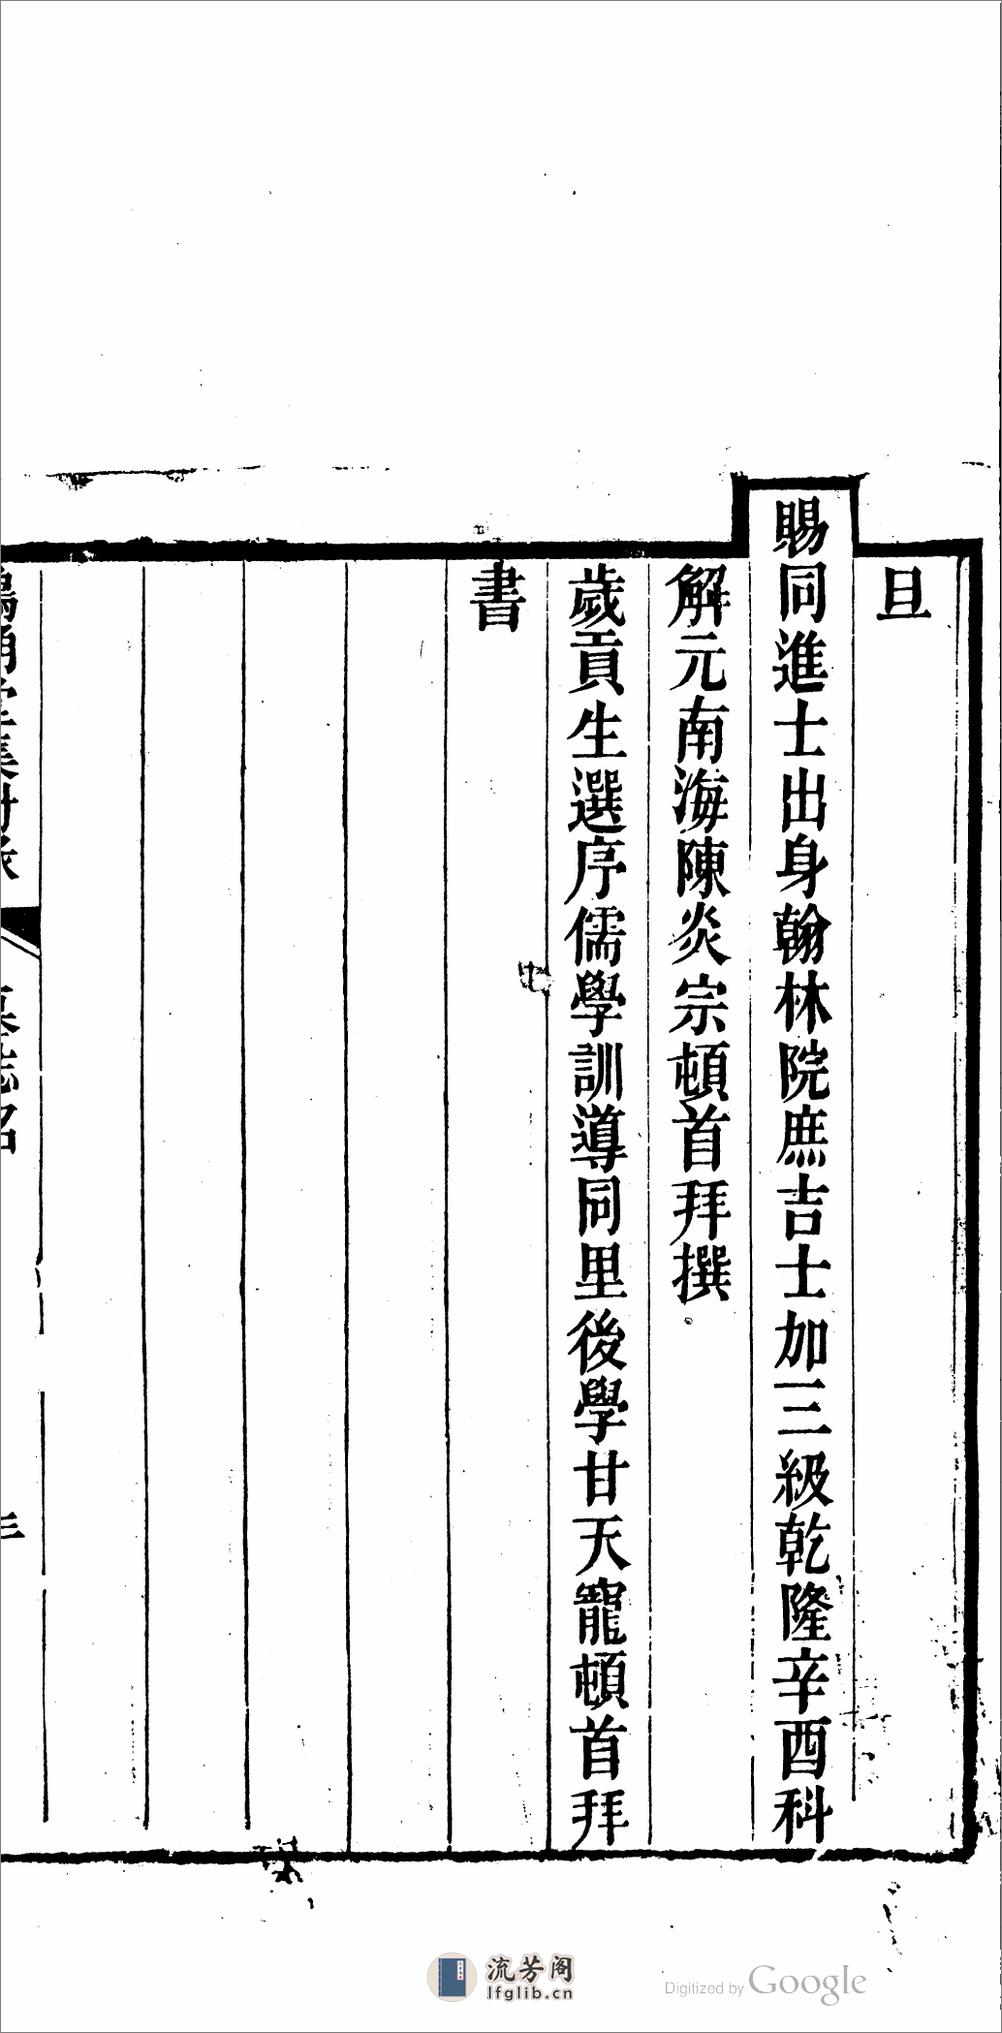 旦
賜同進士出身翰林院庶吉士加三級乾隆辛酉科
解元南海陳炎宗頓首拜撰
歲貢生選序儒學訓導同里後學甘天寵頓首拜
書
墓志名
流芳阁
lfglib.cn
Digitized by Google